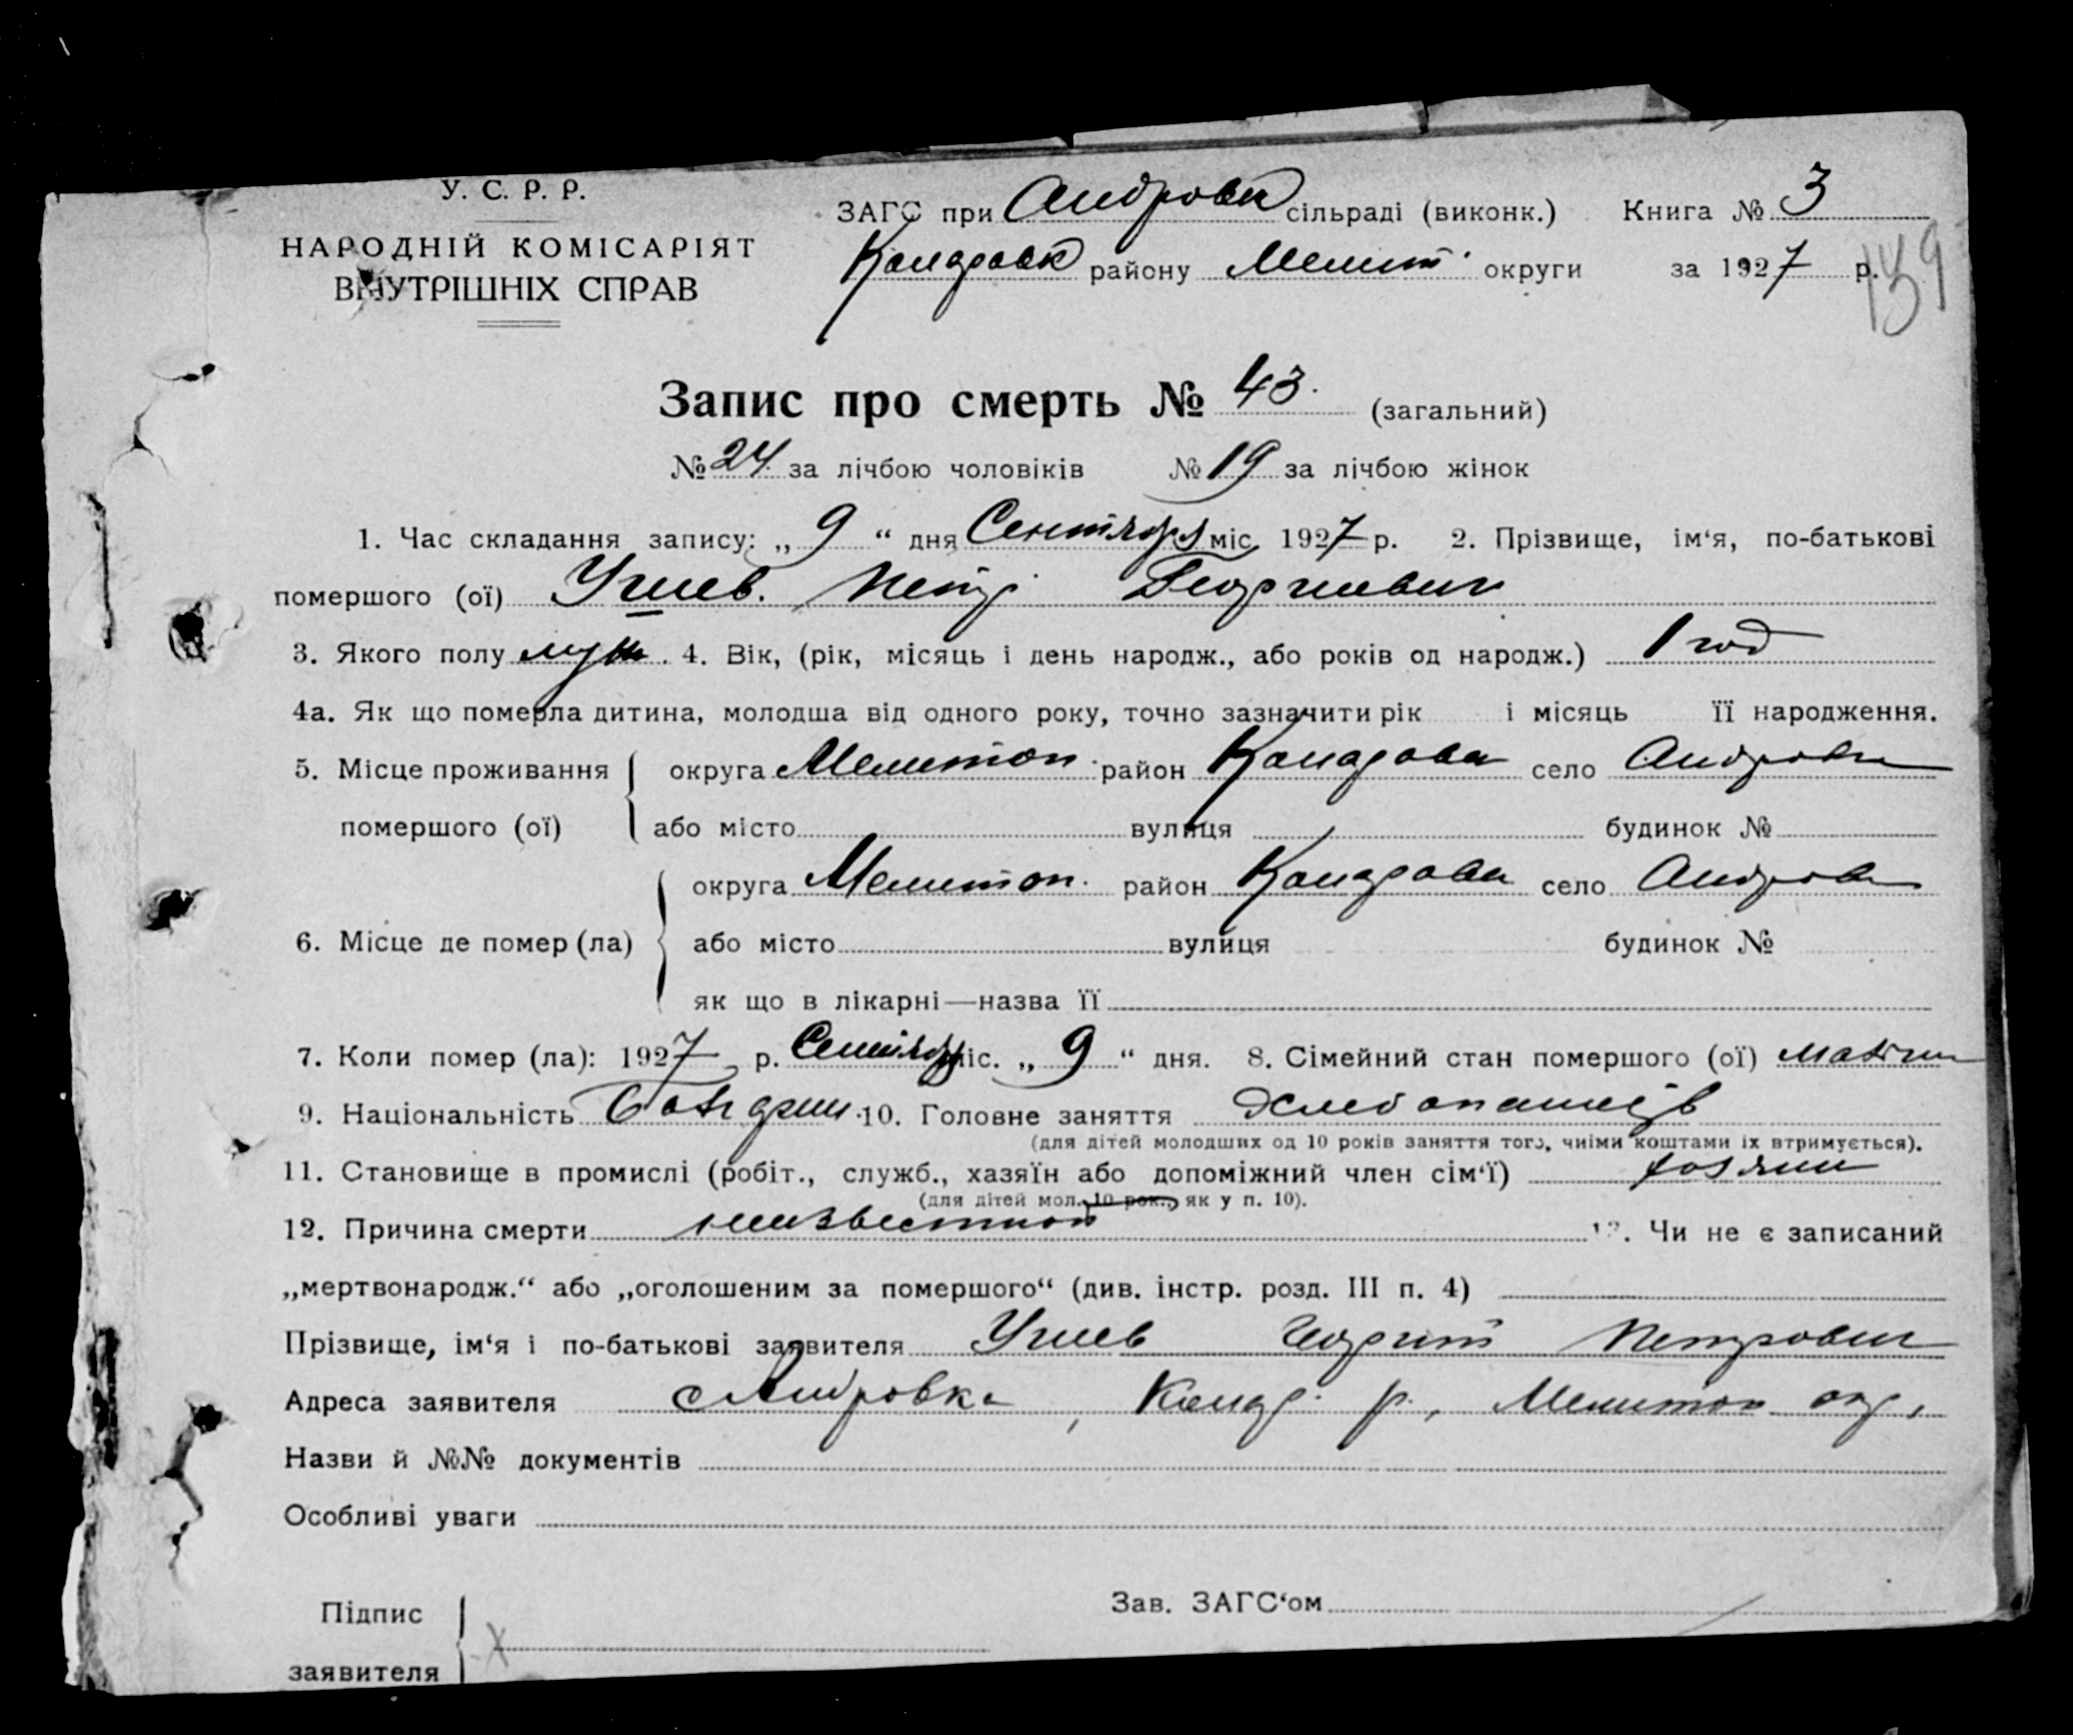 У. С. Р. Р.
НАРОДНІЙ КОМІСАРІЯТ
ВНУТРІШНІХ СПРАВ
ЗАГС при Андровк сільраді (виконк.) Книга № 3
району Мелит. округи за 1927 р.
139
Запис про смерть № 43. (загальний)
№ 24. за лічбою чоловіків № 19 за лічбою жінок
1. Час складання запису: „ 9 “ дня Сентября міс. 1927 р. 2. Прізвище, ім‘я, по-батькові
помершого (ої) Петр Георгиевич
3. Якого полу муж. 4. Вік, (рік, місяць і день народж., або років од народж.) 1 год
4а. Як що померла дитина, молодша від одного року, точно зазначити рік і місяць її народження.
5. Місце проживання округа Мелитоп. район село Андровк
помершого (ої) або місто вулиця будинок №
округа Мелитоп. район село Андров
6. Місце де помер (ла) або місто вулиця будинок №
як що в лікарні—назва її
7. Коли помер (ла): 1927 р. Сентябр міс. „ 9 “ дня. 8. Сімейний стан помершого (ої)
9. Національність 10. Головне заняття
(для дітей молодших од 10 років заняття того, чиїми коштами їх втримується).
11. Становище в промислі (робіт., служб., хазяїн або допоміжний член сім‘ї) хозяин
(для дітей мол. 10 рок., як у п. 10).
12. Причина смерти неизвестной 13. Чи не є записаний
„мертвонародж.“ або „оголошеним за помершого“ (див. інстр. розд. III п. 4)
Прізвище, ім‘я і по-батькові заявителя Георгий Петрович
Адреса заявителя с Андровка, р., Мелитоп окр.
Назви й №№ документів
Особливі уваги
Підпис Зав. ЗАГС‘ом
заявителя